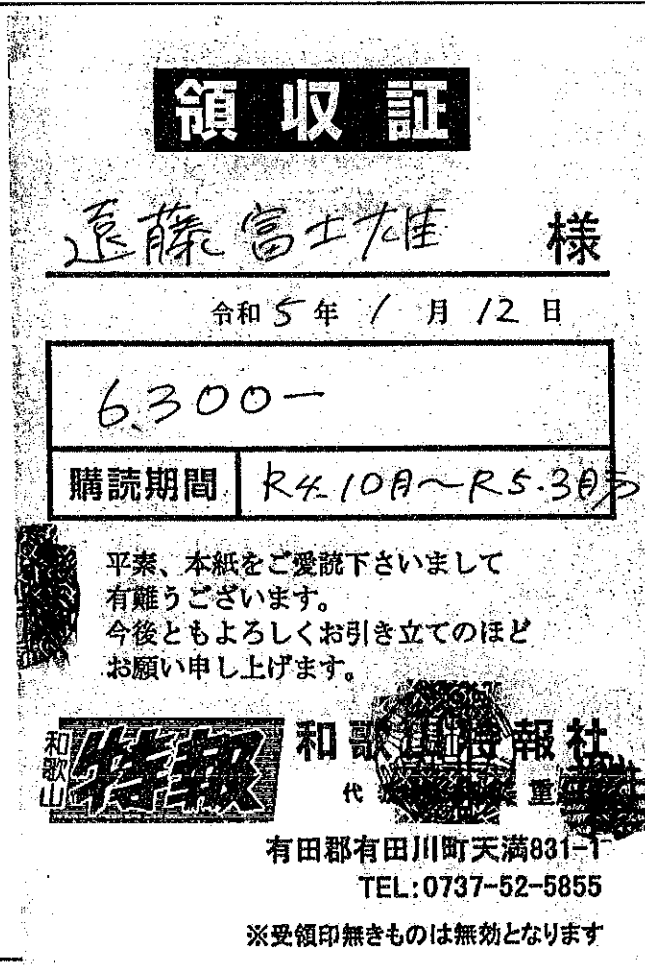 領収証
遠藤富士雄 様
令和 5 年 1 月 12 日
6,300-
購読期間 R4.10月～R5.3月分
平素、本紙をご愛読下さいまして
有難うございます。
今後ともよろしくお引き立てのほど
お願い申し上げます。
和歌山
特報
和歌山特報社
代 重
有田郡有田川町天満831-1
TEL:0737-52-5855
※受領印無きものは無効となります